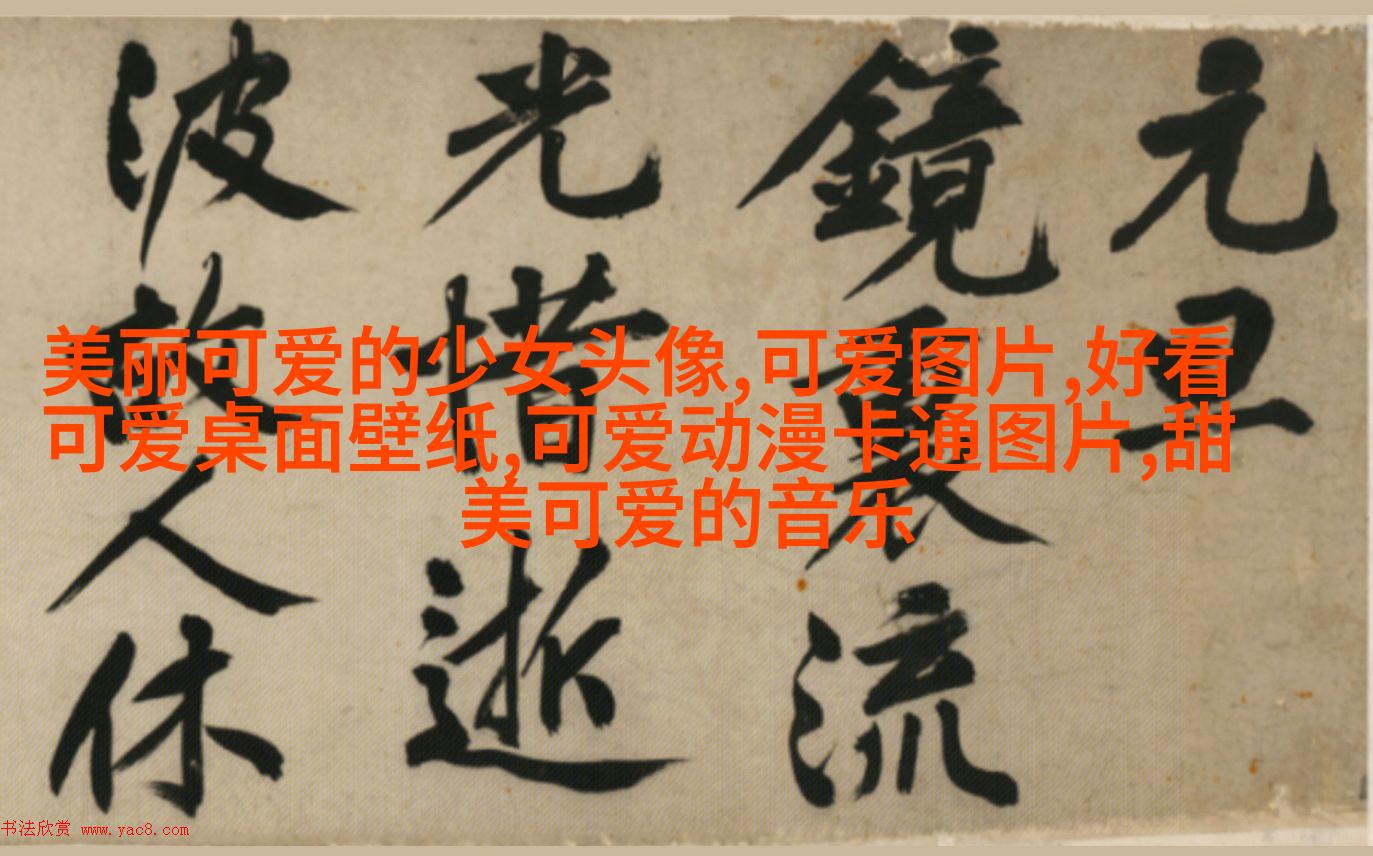 元
鏡裏流
光惜逝
波故人休
美丽可爱的少女头像,可爱图片,好看
可爱桌面壁纸,可爱动漫卡通图片,甜
美可爱的音乐
书法欣赏 www.yac8.com